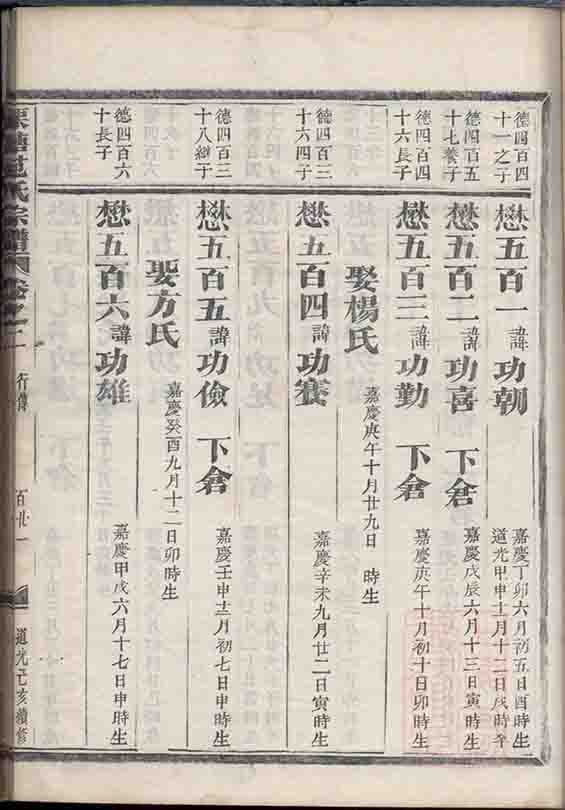 德四百四
十一之子
懋五百一 諱 功朝
嘉慶丁卯六月初五日酉時生
道光甲申十二月十二日戌時卒
德四百五
十七養子
懋五百二 諱 功喜 下倉
嘉慶戊辰六月十三日寅時生
德四百四
十六長子
懋五百三 諱 功勤 下倉
嘉慶庚午十月初十日卯時生
娶楊氏
嘉慶庚午十月廿九日 時生
德四百三
十六四子
懋五百四 諱 功賽
嘉慶辛未九月廿二日寅時生
德四百三
十八繼子
懋五百五 諱 功儉 下倉
嘉慶壬申十二月初七日申時生
娶方氏
嘉慶癸酉九月十二日卯時生
德四百六
十長子
懋五百六 諱 功雄
嘉慶甲戌六月十七日申時生
范氏宗譜 卷之 行傳 百卅一 道光己亥續修